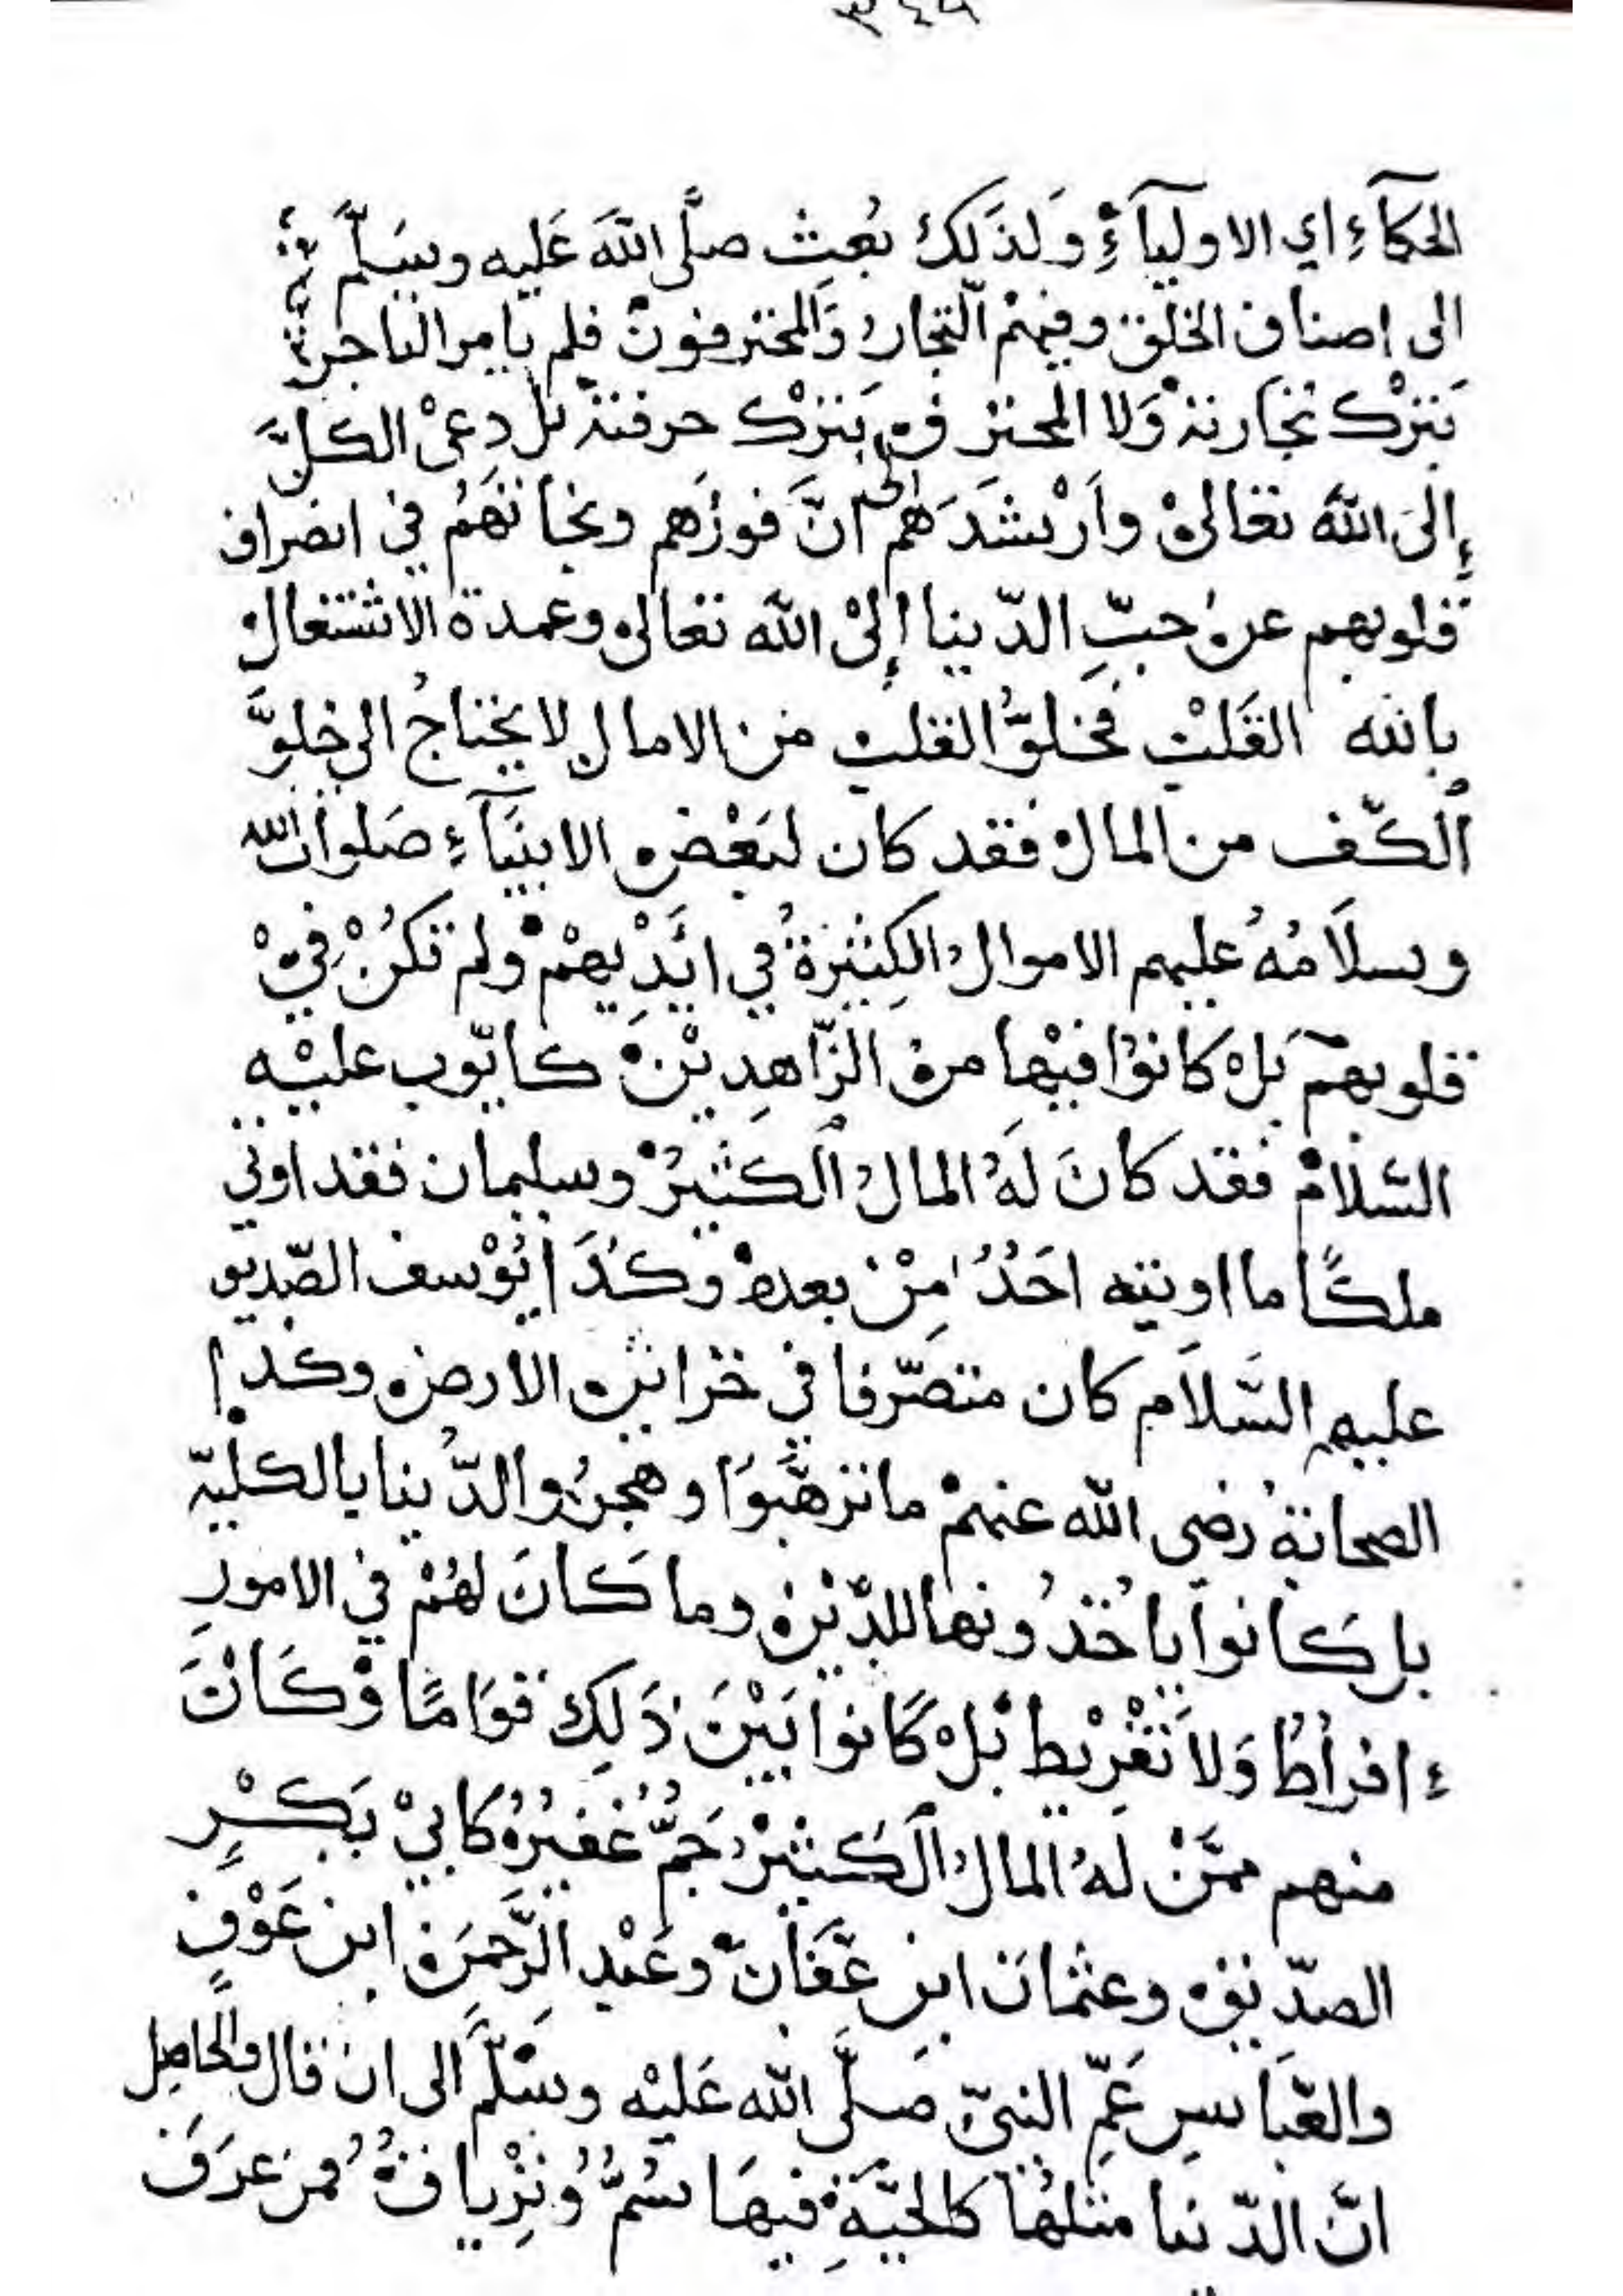 ٣٤٩
الحكمآءِ اي الاوليآءِ وَلذَلكَ بُعِث صلَّى اللهَ عَليه وسَلّمَ
الى اصناف الخلق وفيهمْ التجارُ وَالمحترفونْ فلم يامر التاجر
بَترْك تجارتهْ وَلا المحترف بَترْك حرفتهْ بلْ دعىْ الكلَّ
إلىَ اللهَ تعالىْ وارْشدَهم الى انَّ فوزَهم ونجاتهَمُ في انصراف
قلوبهم عن حبِّ الدّنيا إلىْ الله تعالى وعمدة الاشتغال
بالله القَلبْ فخلوُّ القلب من الامال لا يحتاجُ الى خلوَّ
الكّف من المال فقد كان لبَعْض الانبيَآءِ صَلواتُ الله
وسلَامُهُ عليهم الاموال الكِثيرةُ في ايَدِيهمْ ولم تكُنْ فيْ
قلوبهمْ بَلْ كانوْا فيْها من الزّاهِديْنْ كايّوب عليْه
السّلامْ فقد كانَ لهُ المالُ الكثيرُ وسليمان فقد اوتي
ملكًا ما اوتيه احَدُ مِنْ بعدهْ وكذَا يُوْسف الصّديق
عليهِ السَّلاَم كان متصّرفا في خزائن الارض وكذا
الصحابة رضى الله عنهمْ ما ترهَّبوَا وهجرُوا الدّنيا بالكليّة
بل كَانوا ياخُذُونها للدّيْنْ وما كَانَ لهُمْ في الامورِ
ءافراطُ وَلاَ تفْرِيْط بَلْ كَانوا بَيْنَ ذَلِكَ قوَامًا وْكَانَ
منهم ممَّنْ لَهُ المالُ الكَثيْرْ جَمُّ غفيْرُ كَابيْ بَكْرٍ
الصدّيق وعثمانَ ابن عفَّانْ وعَبْدِ الرَّحمَن ابن عَوْفٍ
والعّبَاسِ عَمِّ النبىّ صَلَّى الله عَليْه وسْلَّمَ الى انْ قال والحاصِل
انَّ الدّنيا مثلهُا كالحيَّةِ فيهَا سُمُّ وُترْيَاقُ فمن عرَفَ